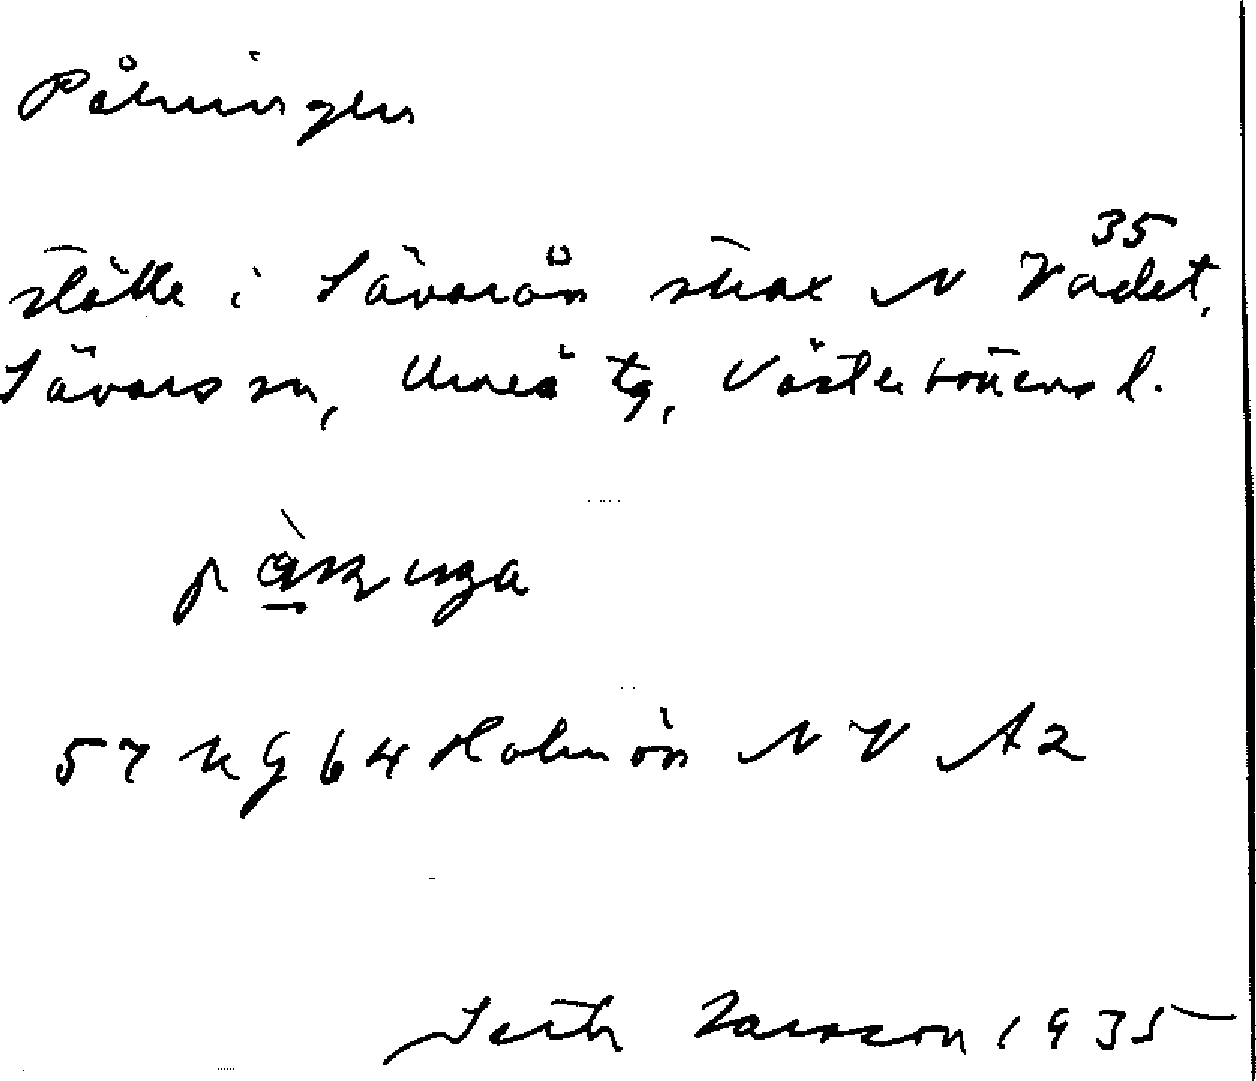 Pålningen
35
ställe i Sävarån strax N Vadet,
Sävars sn, Umeå tg, Västerbottens l.
57 KG 64 Holmön NV A2
Seth Larsson 1935